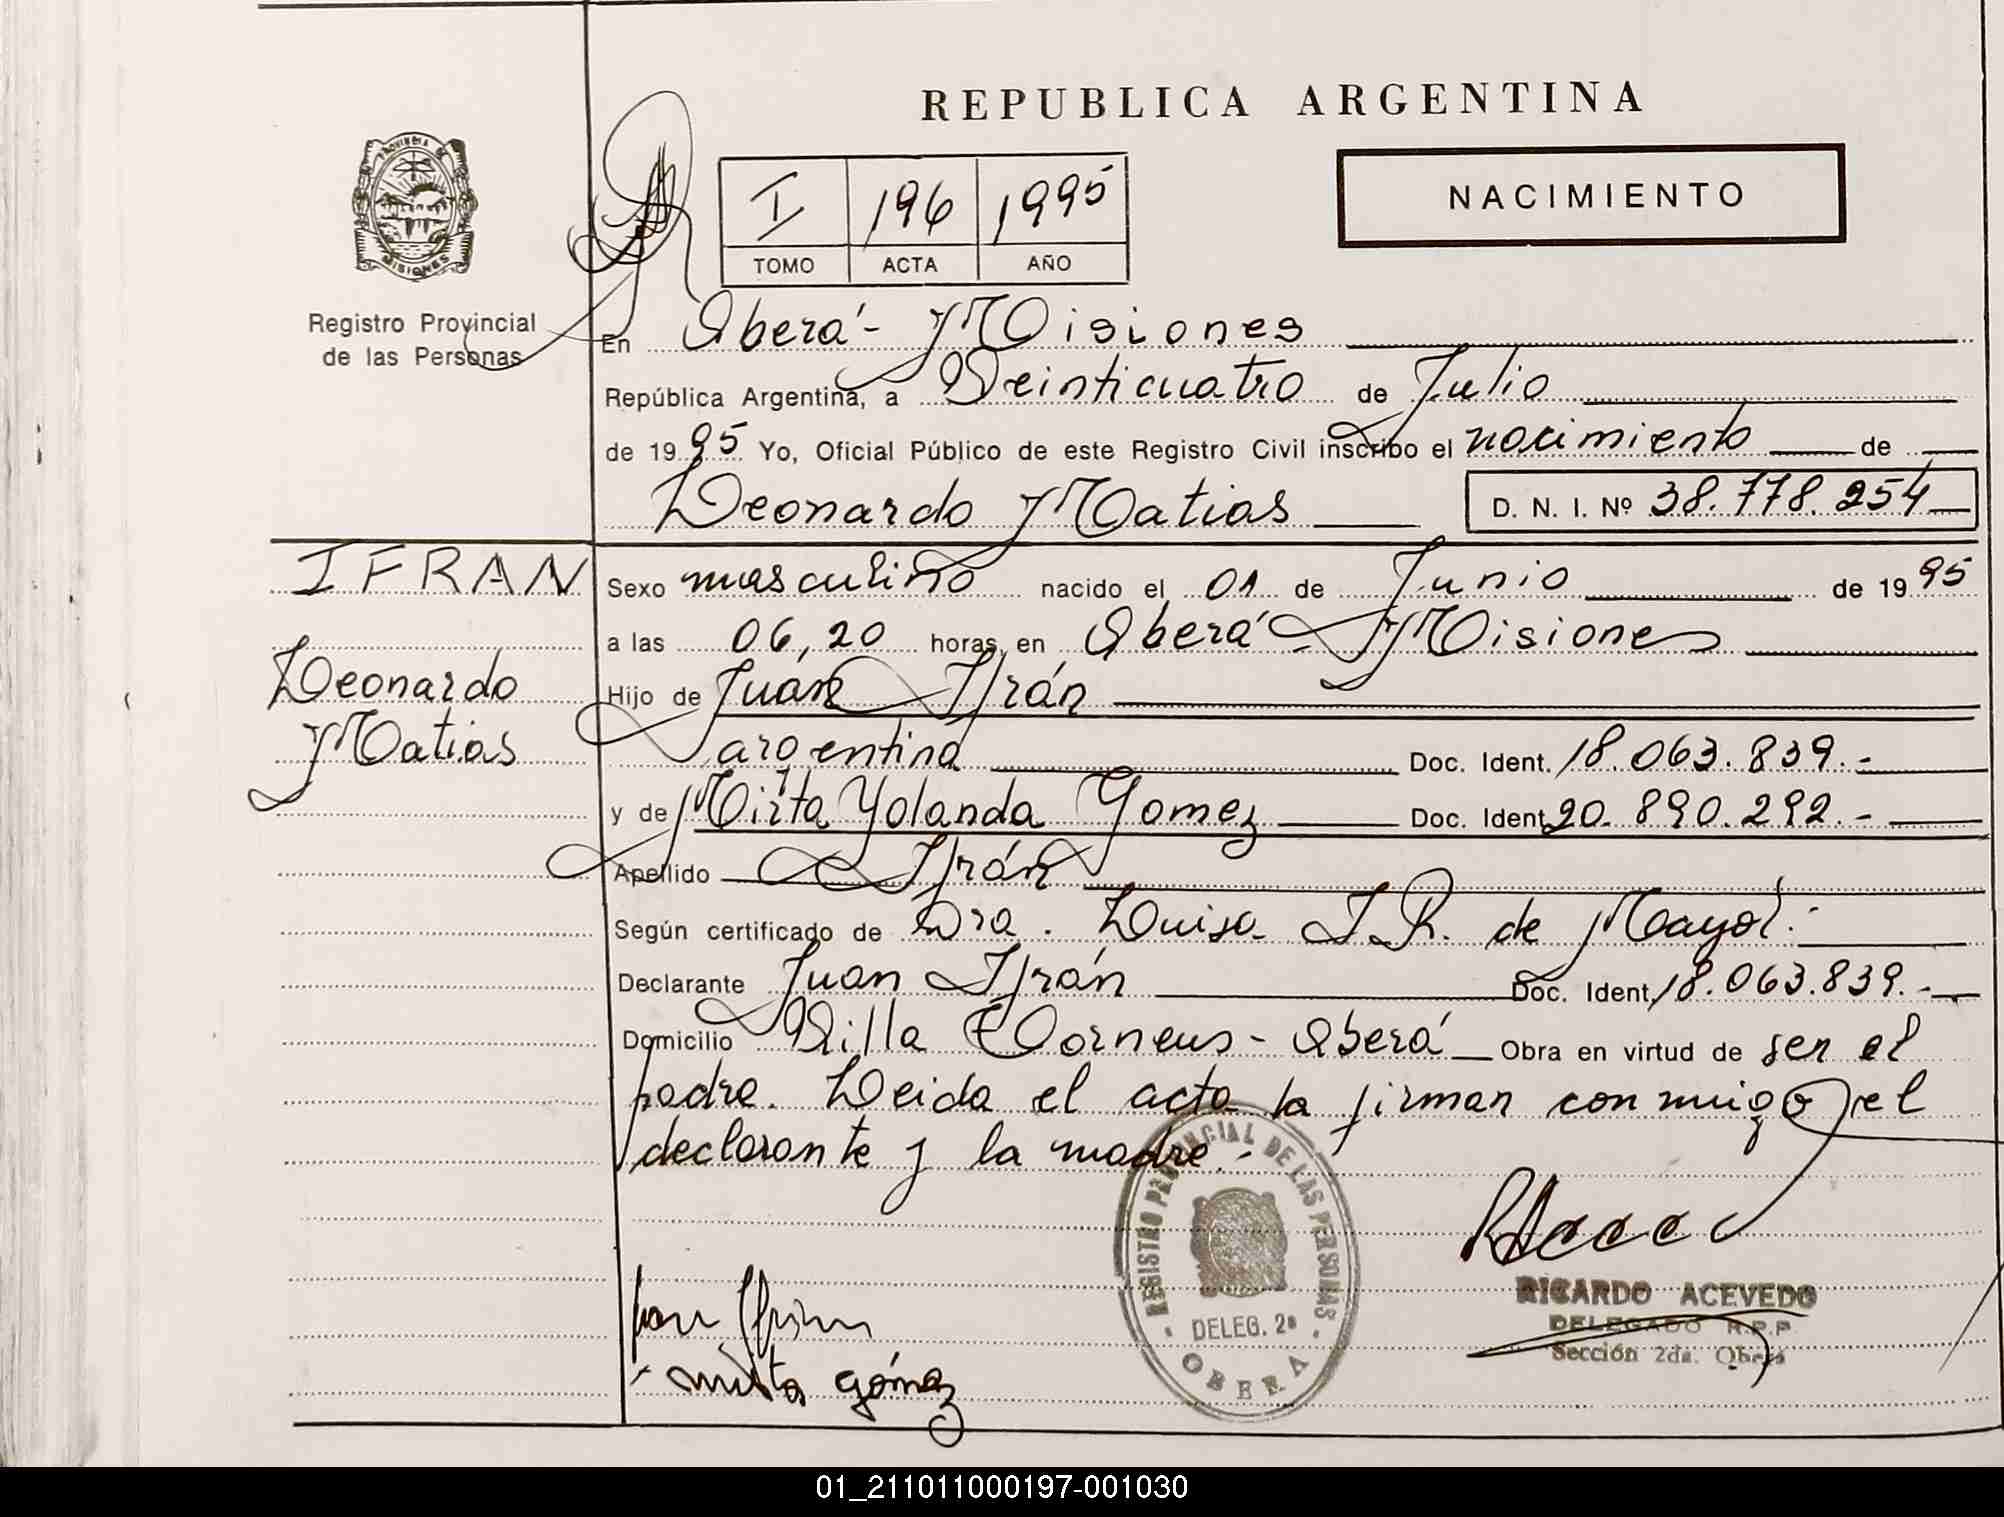 REPUBLICA ARGENTINA
PROVINCIA DE
MISIONES
Registro Provincial
de las Personas
I 196 1995
TOMO ACTA AÑO
NACIMIENTO
En Oberá - Misiones
República Argentina, a Veinticuatro de Julio
de 1995 Yo, Oficial Público de este Registro Civil inscribo el nacimiento de
Leonardo Matias D. N. I. Nº 38.778.254
IFRAN
Leonardo
Matias
Sexo masculino nacido el 01 de Junio de 1995
a las 06,20 horas, en Oberá - Misiones
Hijo de Juán Ifrán
argentina Doc. Ident. 18.063.839.-
y de Mirta Yolanda Gomez Doc. Ident. 20.890.292.-
Apellido Ifrán
Según certificado de Dra. Luisa I.R. de Mayol.-
Declarante Juan Ifrán Doc. Ident. 18.063.839.-
Domicilio Villa - Oberá Obra en virtud de ser el
padre. Leida el acta la firman conmigo el
declarante y la madre.-
REGISTRO PROVINCIAL DE LAS PERSONAS
DELEG. 2ª
OBERA
RICARDO ACEVEDO
DELEGADO R.P.P.
Sección 2da. Oberá
mirta gómez
01_211011000197-001030